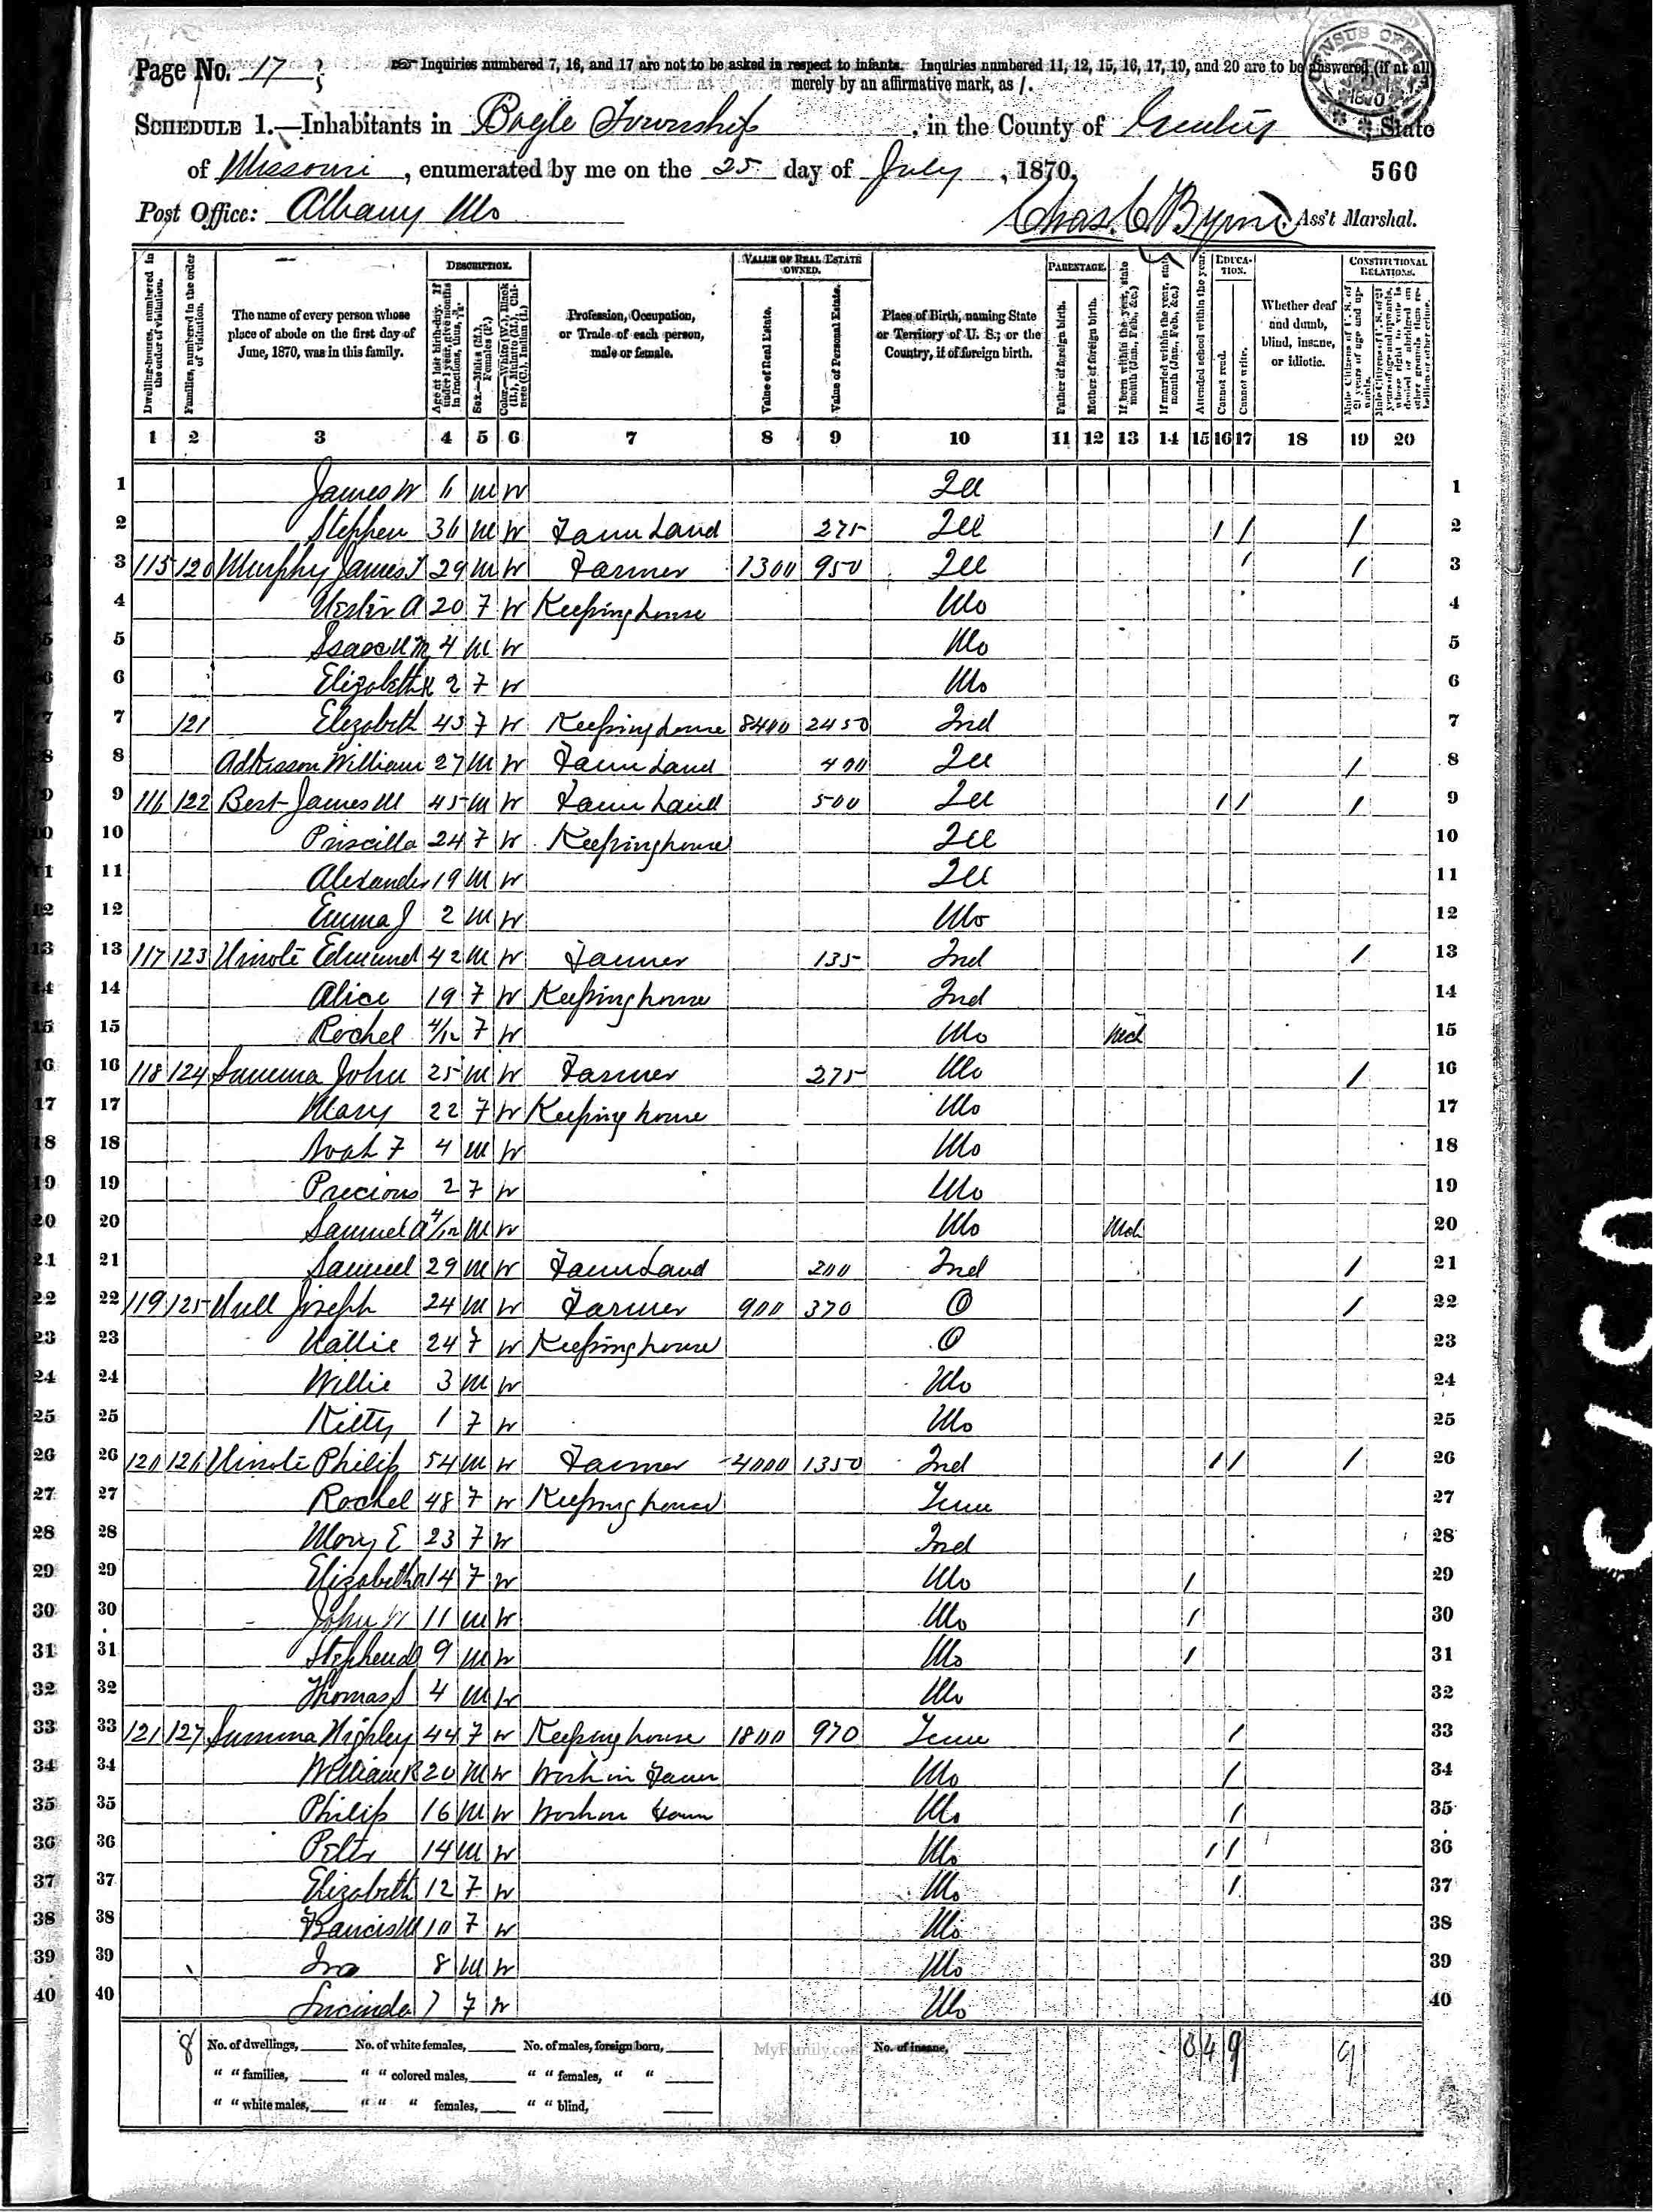 Page No. 17
Inquiries numbered 7, 16, and 17 are not to be asked in respect to infants. Inquiries numbered 11, 12, 15, 16, 17, 19, and 20 are to be answered (if at all)
merely by an affirmative mark, as /.
SCHEDULE 1.—Inhabitants in Bogle Township, in the County of Gentry, State
of Missouri, enumerated by me on the 25 day of July, 1870.
560
Post Office: Albany Mo
Chas. C. Byrne, Ass't Marshal.
Dwelling-houses, numbered in the order of visitation.
Families, numbered in the order of visitation.
The name of every person whose place of abode on the first day of June, 1870, was in this family.
DESCRIPTION.
Age at last birth-day. If under 1 year, give months in fractions, thus,
Sex.—Males (M.), Females (F.)
Color.—White (W.), Black (B.), Mulatto (M.), Chinese (C.), Indian (I.)
Profession, Occupation, or Trade of each person, male or female.
VALUE OF REAL ESTATE OWNED.
Value of Real Estate.
Value of Personal Estate.
Place of Birth, naming State or Territory of U. S.; or the Country, if of foreign birth.
PARENTAGE.
Father of foreign birth.
Mother of foreign birth.
If born within the year, state month (Jan., Feb., &c.)
If married within the year, state month (Jan., Feb., &c.)
Attended school within the year.
EDUCATION.
Cannot read.
Cannot write.
Whether deaf and dumb, blind, insane, or idiotic.
CONSTITUTIONAL RELATIONS.
Male Citizens of U. S. of 21 years of age and upwards.
1 2 3 4 5 6 7 8 9 10 11 12 13 14 15 16 17 18 19 20
1 James W 6 M W Ill 1
2 Stephen 36 M W Farm Hand 275 Ill / / / 2
3 115 120 Murphy James 29 M W Farmer 1300 950 Ill / / 3
4 Hester A 20 F W Keeping house Mo 4
5 Isaac 4 M W Mo 5
6 Elizabeth 2 F W Mo 6
7 121 Elizabeth 43 F W Keeping house 8400 2450 Ind 7
8 Adkisson William 27 M W Farm Hand 400 Ill / 8
9 116 122 Best James M 45 M W Farm Hand 500 Ill / / / 9
10 Priscilla 24 F W Keeping house Ill 10
11 Alexander 19 M W Ill 11
12 Emma J 2 M W Mo 12
13 117 123 Edmund 42 M W Farmer 135 Ind / 13
14 Alice 19 F W Keeping house Ind 14
15 Rachel 4/12 F W Mo Mch 15
16 118 124 Summa John 25 M W Farmer 275 Mo / 16
17 Mary 22 F W Keeping house Mo 17
18 Noah F 4 M W Mo 18
19 Precious 2 F W Mo 19
20 Samuel A 4/12 M W Mo Mch 20
21 Samuel 29 M W Farm Hand 200 Ind / 21
22 119 125 Hull Joseph 24 M W Farmer 900 370 O / 22
23 Hattie 24 F W Keeping house O 23
24 Willie 3 M W Mo 24
25 Kitty 1 F W Mo 25
26 120 126 Philip 54 M W Farmer 4000 1350 Ind / / / 26
27 Rachel 48 F W Keeping house Tenn 27
28 Mary E 23 F W Ind 28
29 Elizabeth A 14 F W Mo / 29
30 John W 11 M W Mo / 30
31 Stephen D 9 M W Mo / 31
32 Thomas S 4 M W Mo 32
33 121 127 Summa Highley 44 F W Keeping house 1800 970 Tenn / 33
34 William R 20 M W Work on Farm Mo / 34
35 Philip 16 M W Work on Farm Mo / 35
36 Peter 14 M W Mo / / 36
37 Elizabeth 12 F W Mo / 37
38 Francis M 10 F W Mo 38
39 Ira 8 M W Mo 39
40 Lucinda 7 F W Mo 40
8 No. of dwellings, No. of white females, No. of males, foreign born, MyFamily.com No. of insane, 3 4 9 9
" " families, " " colored males, " " females, " "
" " white males, " " " females, " " blind,